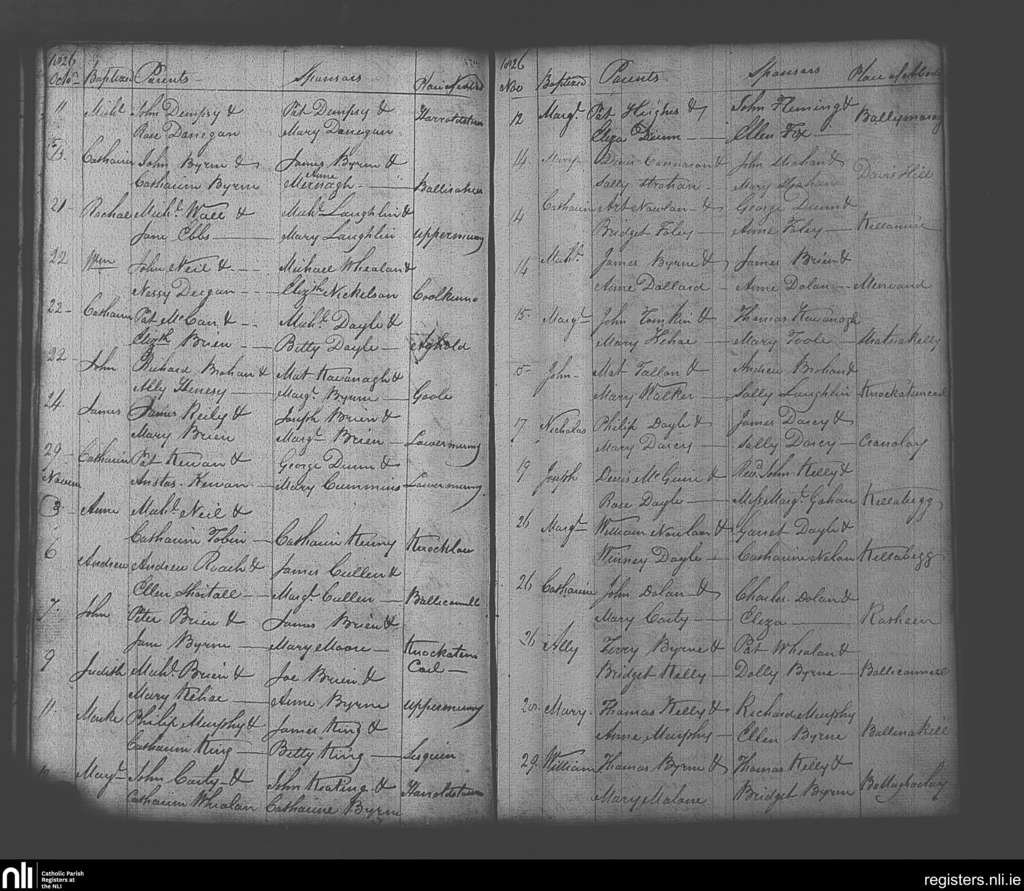 1826
Octor Baptized Parents Sponsors Place of Abode
11 Michl John Dempsy & Pat Dempsy &
Rose Danegan Mary Danegan
15 Catharin John Byrne & James Byrne &
Catharine Byrne Anne Mernagh
21 Rachae Michl Wall & Michl Laughlin &
Jane Ebbs Mary Laughlin uppermuny
22 Wm John Neil & Michael Whealan &
Nessy Deegan Elizth Nickelson Coolkenno
22 Catharin Pat McCan & Michl Doyle &
Elizth Brien Betty Doyle Aghold
22 John Richard Brohan & Mat Kavanagh &
Ally Henesy Margt Byrne Goole
24 James James Reily & Joseph Brien &
Mary Brien Margt Brien Lowermuny
29 Catharin Pat Kewan & George Dunn &
Anstas. Kewan Mary Cummins Lowermuny
Novem
3 Anne Michl Neil &
Catharin Tobin Catharin Kenny Knocklow
6 Andrew Andrew Roach & James Cullen &
Ellen Shortall Margt Cullen Balliconnell
7 John Peter Brien & James Brien &
Jane Byrne Mary Moore
9 Judith Michl Brien & Joe Brien &
Mary Kehoe Anne Byrne uppermuny
11 Marke Philip Murphy & James King &
Catharin King Betty King Lisquin
Margt John Carty & John Keating &
Catharin Whealan Catharine Byrne
1826
Nov Baptized Parents Sponsors Place of Abode
12 Margt Pat Heighes & John Fleming &
Eliza Dunn Ellen Fox
14 John Strahan &
Sally Strahan Mary Strahan Davis Hill
14 Catharin Art Nowlan & George Dunn &
Bridget Foley Anne Foley
14 Michl James Byrne & James Brien &
Anne Dallard Anne Dolan
15 Margt John Tomkin & Thomas Kavanagh
Mary Kehoe Mary Toole
15 John Mat Fallon & Andrew Brohan &
Mary Walker Sally Laughlin
17 Nicholas Philip Doyle & James Darcy &
Mary Darcy Sally Darcy
19 Joseph Denis McGuire & Revd John Kelly &
Rose Doyle Miss Margt Gahan Killabegg
26 Margt William Nowlan & Garret Doyle &
Winney Doyle Catharine Nolan Killabegg
26 Catharin John Dolan & Charles Dolan &
Mary Carty Eliza
26 Ally Terry Byrne & Pat Whealan &
Bridget Kelly Dolly Byrne Balliconnell
Mary Thomas Kelly & Richard Murphy
Anne Murphy Ellen Byrne
29 William Thomas Byrne & Thomas Kelly &
Mary Malone Bridget Byrne
nli
Catholic Parish
Registers at
the NLI
registers.nli.ie